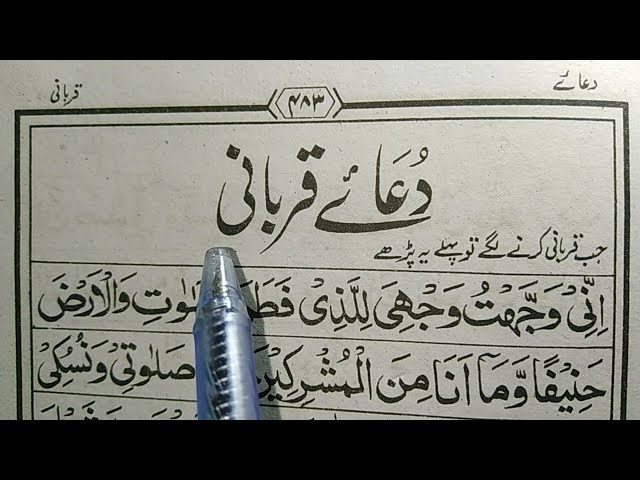 دعائے
۴۸۳
قربانی
دُعَائے قربانی
جب قربانی کرنے لگے تو پہلے یہ پڑھے
اِنِّیْ وَجَّهْتُ وَجْهِیَ لِلَّذِیْ وَالْاَرْضَ
حَنِیْفًا وَّمَآ اَنَا مِنَ الْمُشْرِکِیْنَ صَلٰوتِیْ وَنُسُکِیْ